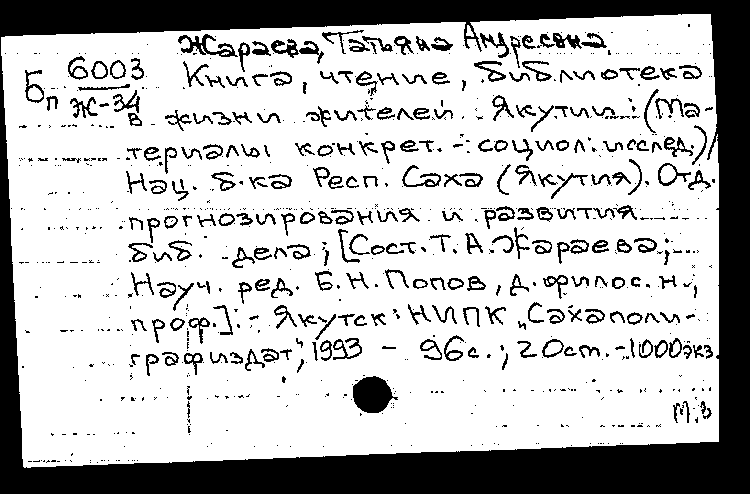 Жараева, Татьяна Андреевна
Бп 6003
Ж-34
Книга, чтение, библиотека
в жизни жителей Якутии: (Ма-
териалы конкрет.-социол. исслед.)/
Нац. б-ка Респ. Саха (Якутия). Отд.
прогнозирования и развития
биб. дела; [Сост. Т. А. Жараева;
Науч. ред. Б. Н. Попов, д. филос. н.,
проф.]. - Якутск: НИПК „Сахаполи-
графиздат", 1993 - 96 с.; 20 см. - 1000 экз.